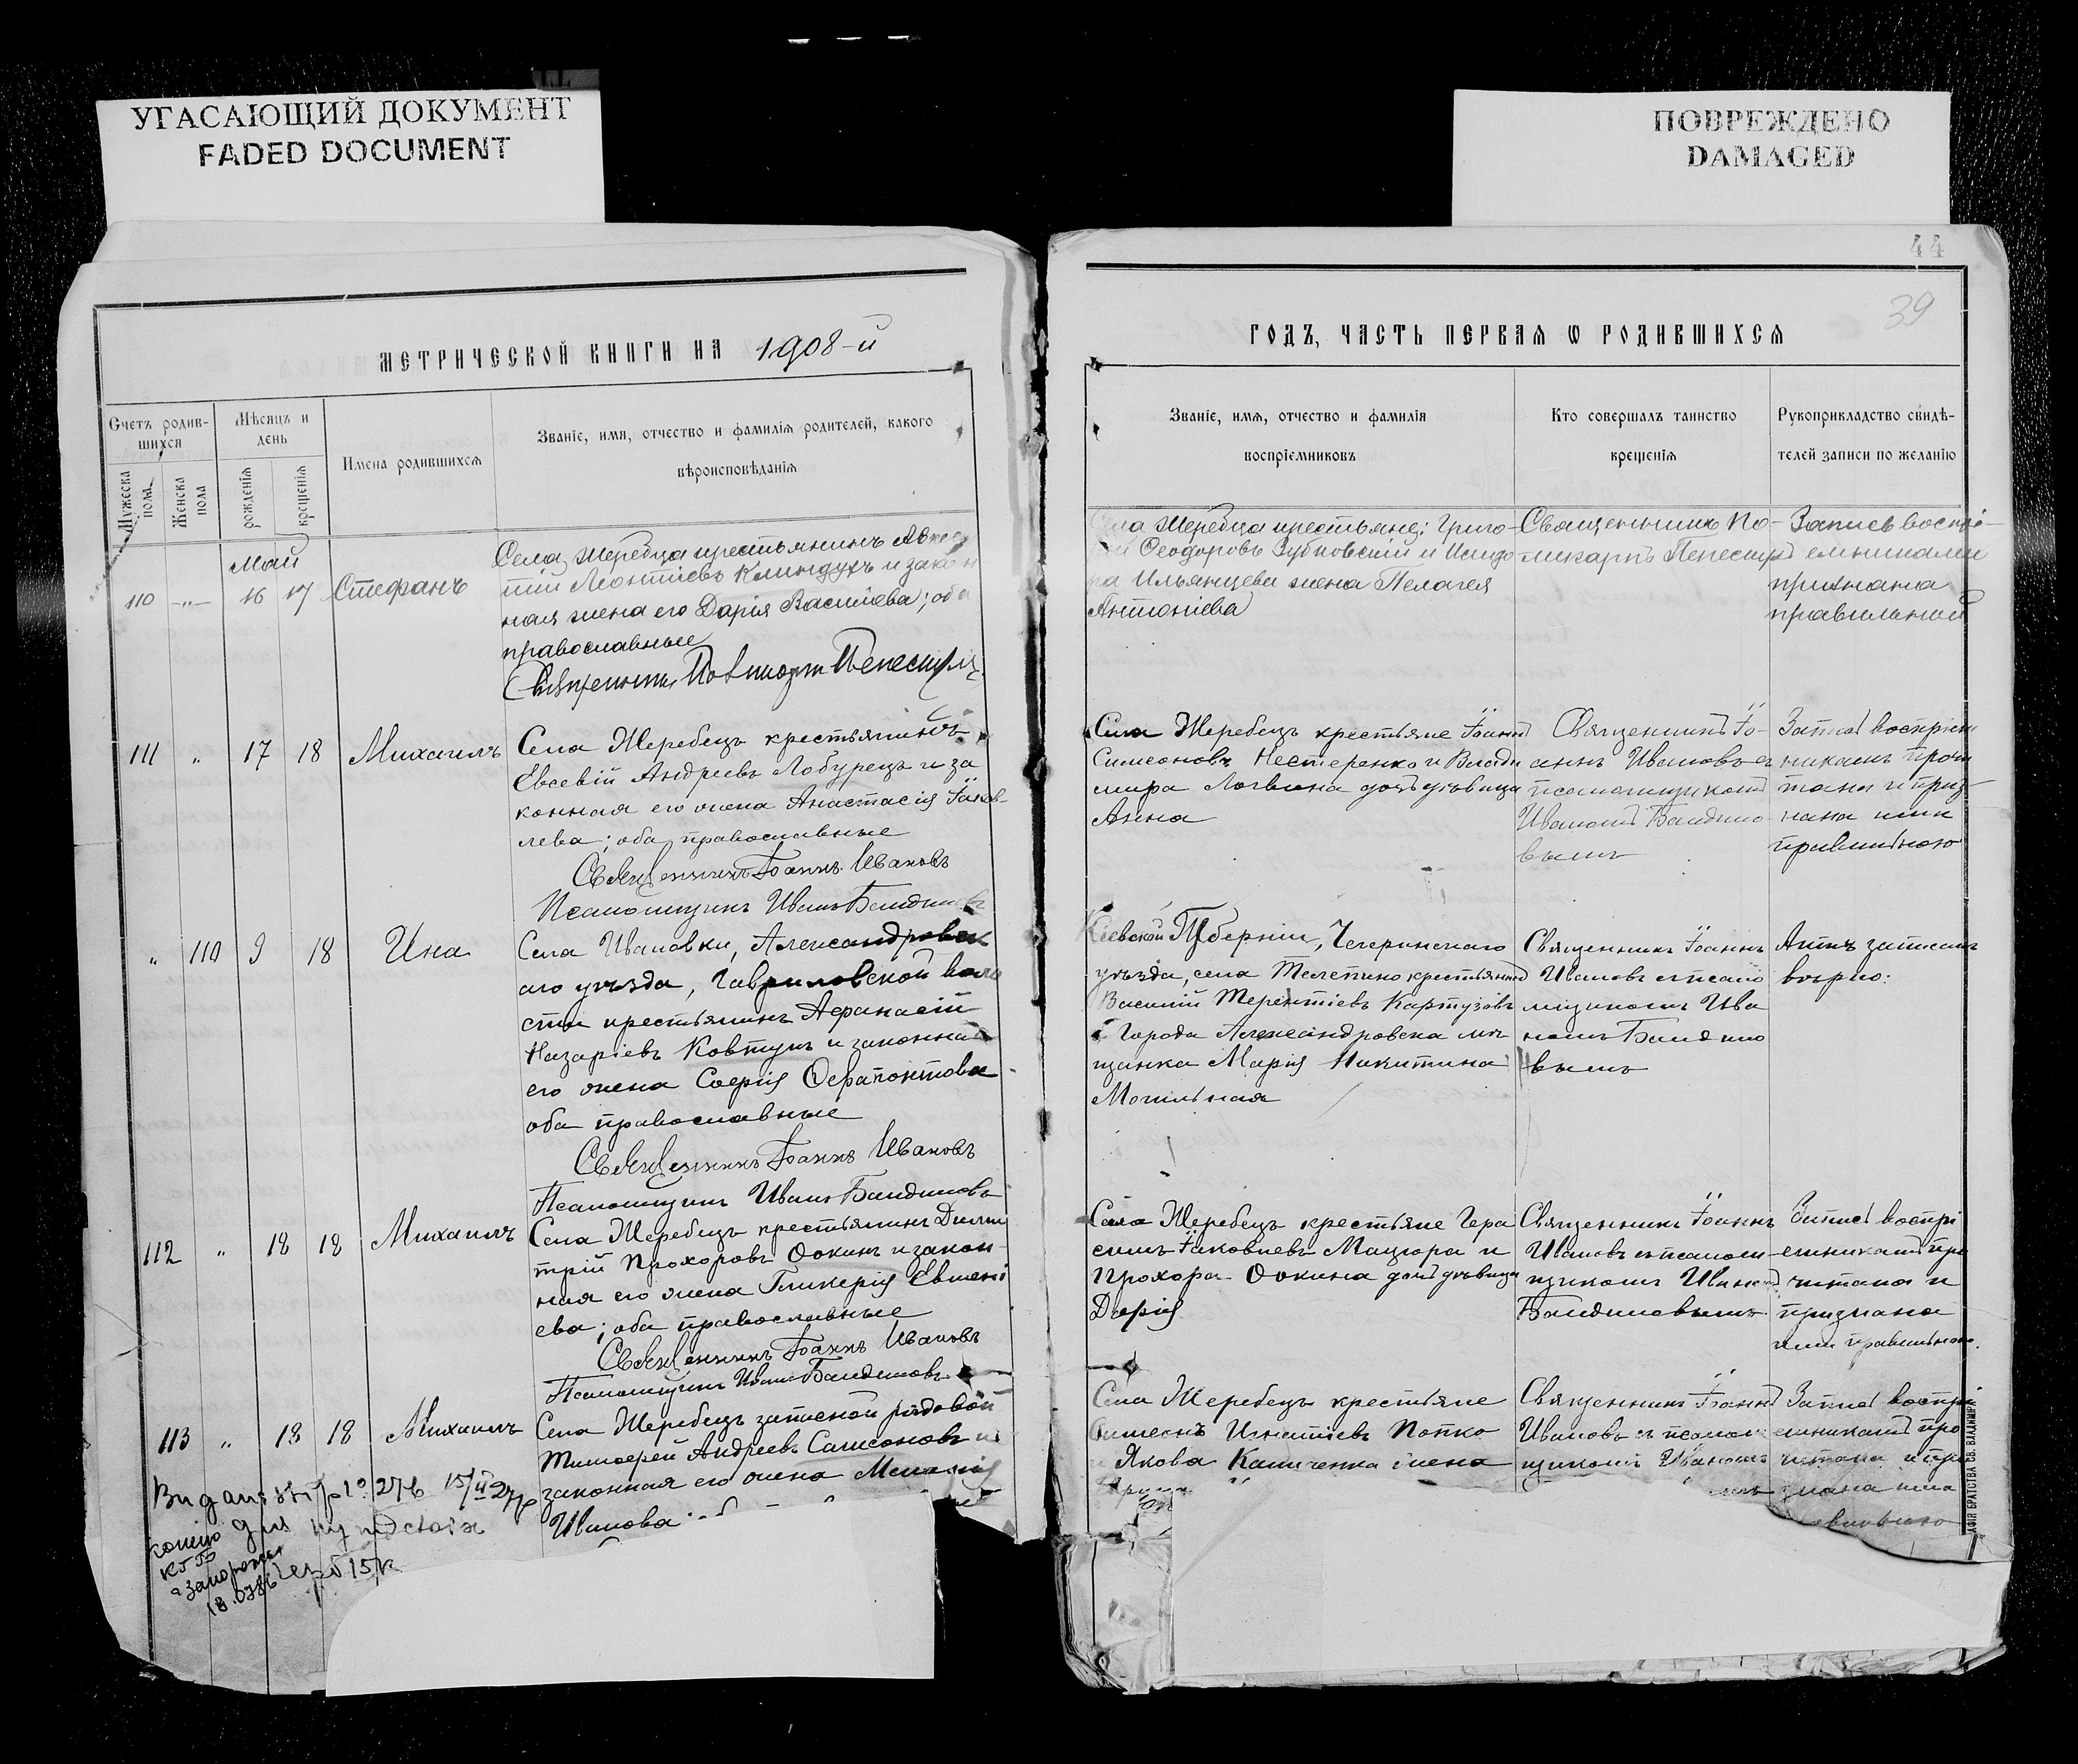 УГАСАЮЩИЙ ДОКУМЕНТ
FADED DOCUMENT
ПОВРЕЖДЕНО
DAMAGED
44
39
МЕТРИЧЕСКОЙ КНИГИ НА 1908-й
ГОДЪ, ЧАСТЬ ПЕРВАЯ Ѡ РОДИВШИХСЯ
Счетъ родив-
шихся
Мужеска пола
Женска пола
Мѣсяцъ и
день
рожденія
крещенія
Имена родившихся
Званіе, имя, отчество и фамилія родителей, какого
вѣроисповѣданія
Званіе, имя, отчество и фамилія
воспріемниковъ
Кто совершалъ таинство
крещенія
Рукоприкладство свидѣ-
телей записи по желанію
Май
110 -"- 16 17 Стефанъ
Села Жеребца крестьянинъ
Леонтіевъ Клиндухъ и закон
ная жена его Дарія Василіева; оба
православные
Священникъ Поликарпъ Пепескулъ
Села Жеребца крестьяне: Григо-
Ѳеодоровъ Зубковскій и Исидо
ра Ильянцева жена Пелагея
Антоніева
Священникъ По-
ликарпъ Пепескулъ
Запись воспрі-
емниками
признана
правильной
111 " 17 18 Михаилъ
Села Жеребецъ крестьянинъ
Евсевій Андреевъ Лобурецъ и за
конная его жена Анастасія Іаков-
лева; оба православные
Священникъ Іоаннъ Ивановъ
Псаломщикъ Иванъ Баидиновъ
Села Жеребецъ крестьяне Іоаннъ
Симеоновъ Нестеренко и Влади
мира Логвина дочь дѣвица
Анна
Священникъ Іо-
аннъ Ивановъ съ
псаломщикомъ
Иваномъ Баидино-
вымъ
Запись воспріем
никамъ прочи
тана и приз-
нана ими
правильною
" 110 9 18 Инна
Села Ивановки, Александровск
аго уѣзда, Гавриловской воло
сти крестьянинъ Аѳанасій
Назаріевъ Ковтунъ и законная
его жена Софія Ѳерапонтова
оба православные
Священникъ Іоаннъ Ивановъ
Псаломщикъ Иванъ Баидиновъ
Кіевской Губерніи, Чегеринскаго
уѣзда, села Телепино крестьянинъ
Василій Терентіевъ Картузовъ
и Города Александровска мѣ
щанка Марія Никитина
Могильная
Священникъ Іоаннъ
Ивановъ съ псало
мщикомъ Ива
номъ Баидино
вымъ
Актъ записанъ
вѣрно:
112 " 18 18 Михаилъ
Села Жеребецъ крестьянинъ Дими
трій Прохоровъ Ѳокинъ и закон-
ная его жена Гликерія Евмені
ева; оба православные
Священникъ Іоаннъ Ивановъ
Псаломщикъ Иванъ Баидиновъ
Села Жеребецъ крестьяне Гера
симъ Іаковлевъ Мацюра и
Прохора Ѳокина дочь дѣвица
Дарія
Священникъ Іоаннъ
Ивановъ съ псалом-
щикомъ Иваномъ
Баидиновымъ
Запись воспрі
емникамъ про
читана и
признана
ими правильною.
113 " 18 18 Михаилъ
Села Жеребецъ запасной рядовой
Тимоѳей Андреевъ Самсоновъ и
законная его жена Меланія
Иванова
Села Жеребецъ крестьяне
Симеонъ Игнатіевъ Попко
и Якова Капиченка жена
Священникъ Іоаннъ
Ивановъ съ псалом
щикомъ Иваномъ
Запись воспрі
емникамъ про
читана и при
знана ими
15/II 27р
15к